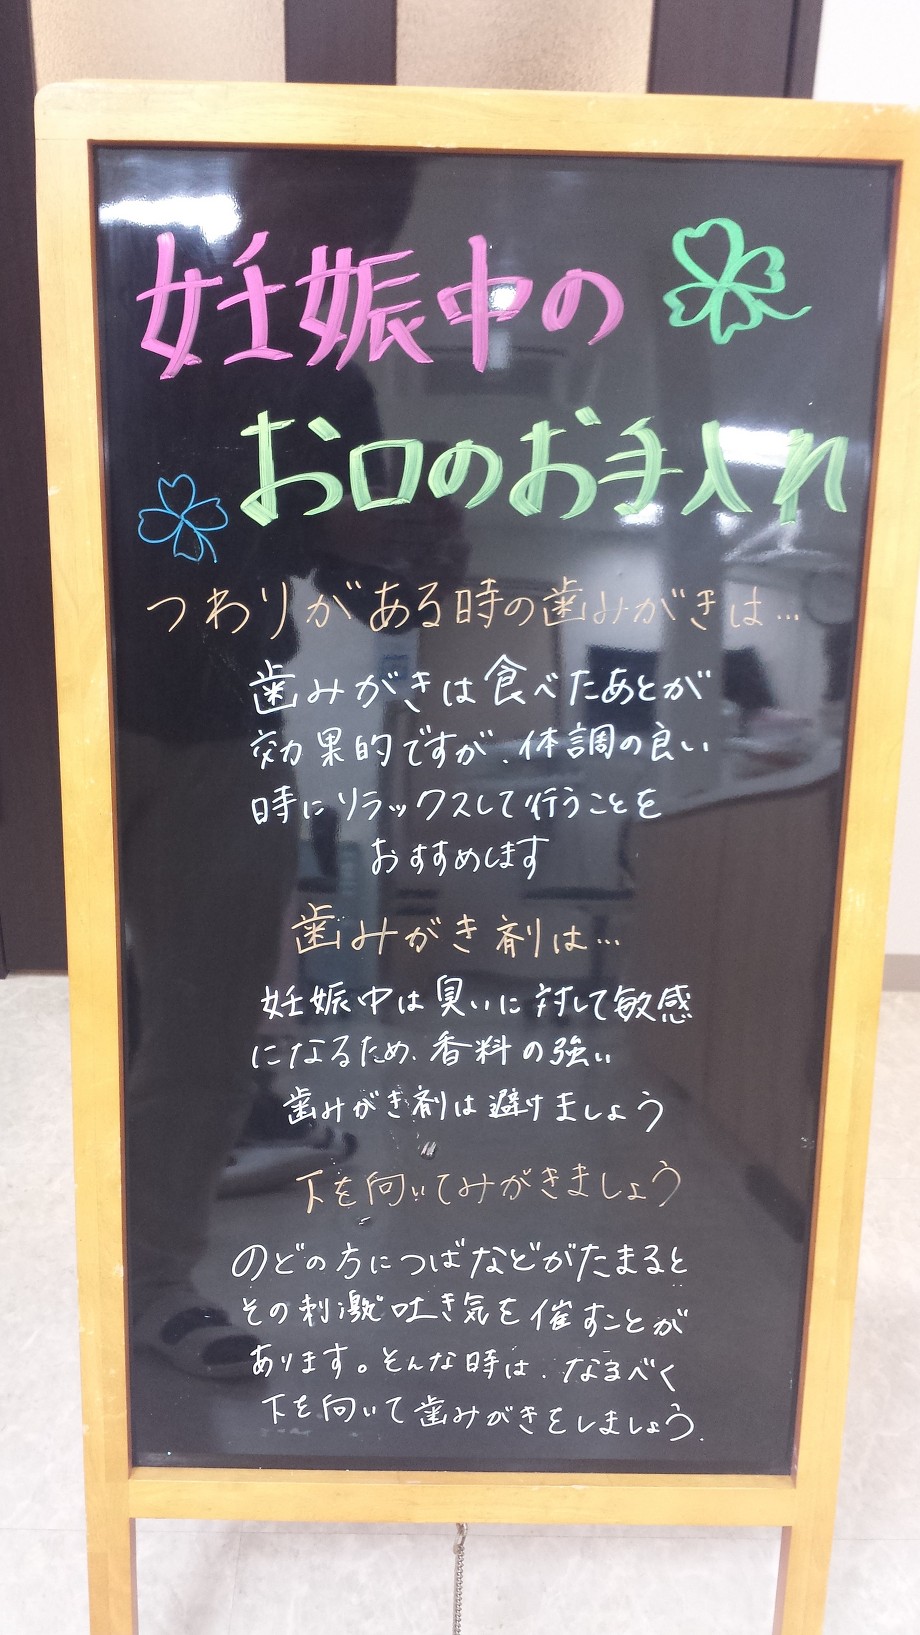 妊娠中の
お口のお手入れ
つわりがある時の歯みがきは…
歯みがきは食べたあとが
効果的ですが、体調の良い
時にリラックスして行うことを
おすすめします
歯みがき剤は…
妊娠中は臭いに対して敏感
になるため、香料の強い
歯みがき剤は避けましょう
下を向いてみがきましょう
のどの方につばなどがたまると
その刺激で吐き気を催すことが
あります。そんな時は、なるべく
下を向いて歯みがきをしましょう。